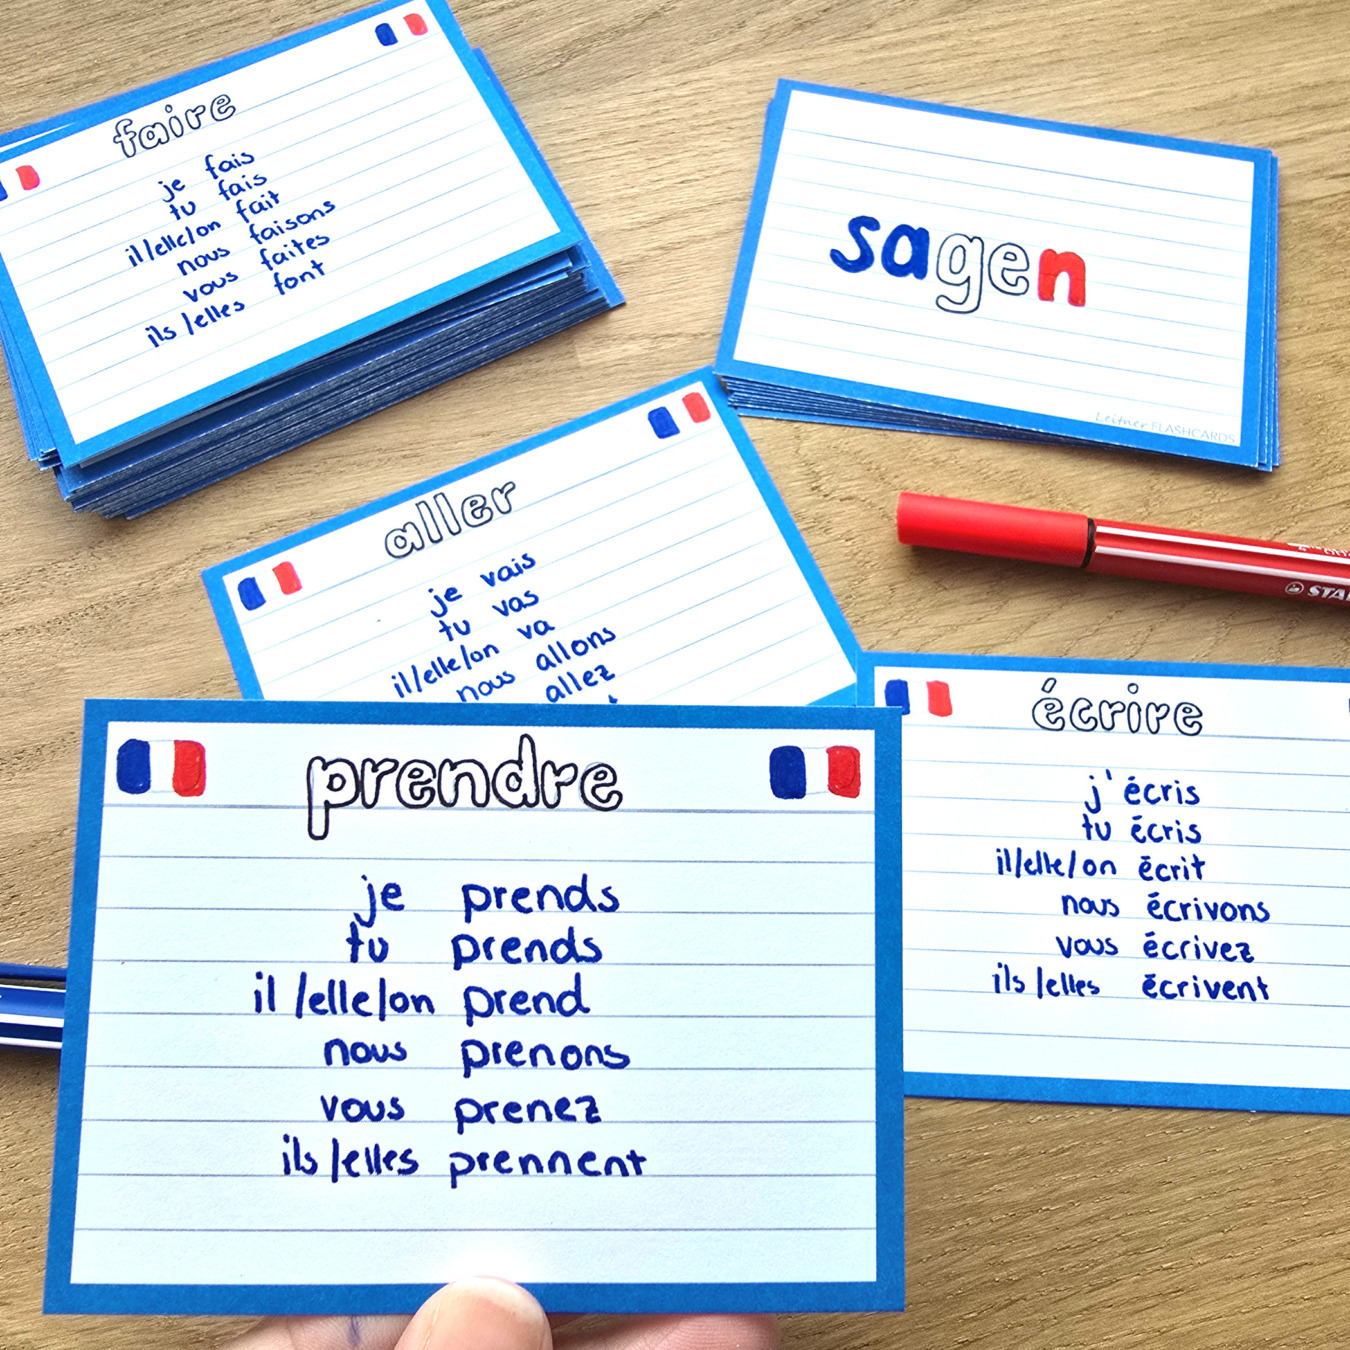 faire
je fais
tu fais
il/elle/on fait
nous faisons
vous faites
ils/elles font
sagen
Leitner FLASHCARDS
aller
je vais
tu vas
il/elle/on va
nous allons
allez
écrire
j'écris
tu écris
il/elle/on écrit
nous écrivons
vous écrivez
ils/elles écrivent
prendre
je prends
tu prends
il/elle/on prend
nous prenons
vous prenez
ils/elles prennent